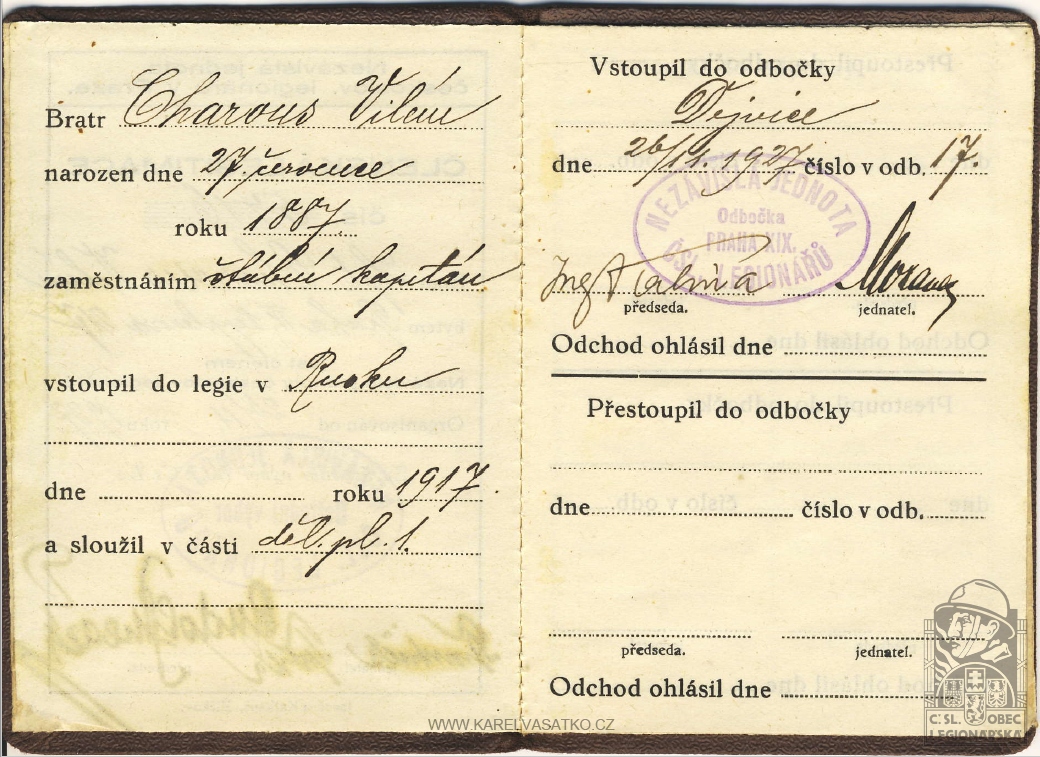 Bratr Charous Vilém
narozen dne 27 července
roku 1887.
zaměstnáním štábní kapitán
vstoupil do legie v Rusku
dne roku 1917.
a sloužil v části děl. pl. 1.
Vstoupil do odbočky
Dejvice
dne 26/11. 1927 číslo v odb. 17.
NEZÁVISLÁ JEDNOTA
Odbočka
PRAHA XIX.
ČSL. LEGIONÁŘŮ
Ing
předseda. jednatel.
Odchod ohlásil dne
Přestoupil do odbočky
dne číslo v odb.
předseda. jednatel.
Odchod ohlásil dne
WWW.KARELVASATKO.CZ
Č. SL. OBEC
LEGIONÁŘSKÁ